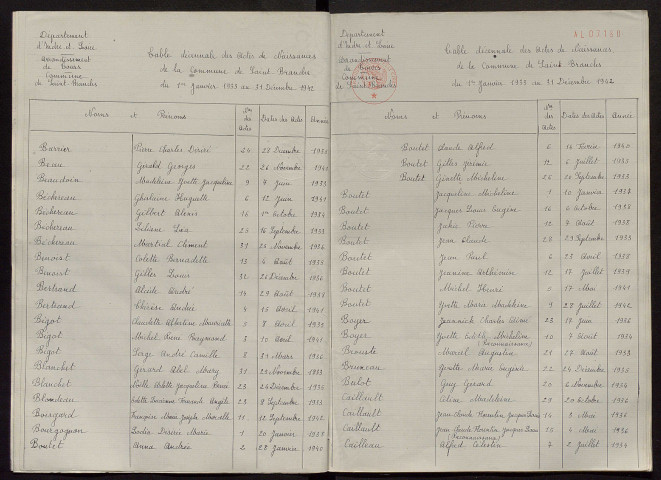 Département
d'Indre et Loire
Arrondissement
de Tours
Commune
de Saint Branchs
Table décennale des Actes de Naissances
de la Commune de Saint Branchs
du 1er Janvier 1933 au 31 Décembre 1942
Noms et Prénoms Nos des Actes Dates des Actes Années
Barrier Pierre Charles Désiré 24 23 Décembre
Beau Gérald Georges 22 26 Novembre 1941
Beaudoin Madeleine Yvette Jacqueline 9 7 Juin 1933
Béchereau Ghislaine Huguette 6 12 Juin 1941
Béchereau Gilbert Alexis 16 1er Octobre 1934
Béchereau 25 16 Septembre 1933
Béchereau Martial Clément 31 25 Novembre 1936
Benoist Colette Bernadette 13 4 Août
Benoist Gilles 32 28 Décembre 1936
Bertrand Alcide André 14 29 Août 1938
Bertrand Thérèse Andrée 4 15 Avril 1941
Bigot Claudette Albertine Mauricette 5 8 Avril
Bigot Michel Pierre Raymond 3 10 Avril 1941
Bigot Serge André Camille 8 31 Mars 1936
Blanchet Gérard Abel Marg 31 23 Novembre 1933
Blanchet Noëlle Odette Jacqueline Renée 23 24 Décembre 1936
Blondeau Odette 23 8 Septembre 1933
Bourgard Françoise Marie Josèphe Marcelle 11 12 Septembre 1942
Bourgognon Désirée Marie 1 20 Janvier 1938
Boutet Anna Andrée 2 28 Janvier 1940
Département
d'Indre et Loire
Arrondissement
de Tours
Commune
de Saint Branchs
Table décennale des Actes de Naissances
de la Commune de Saint Branchs
du 1er Janvier 1933 au 31 Décembre 1942
Noms et Prénoms Nos des Actes Dates des Actes Années
Boutet Claude Alfred 6 14 Février 1940
Boutet Gilles Jérémie 12 6 Juillet 1935
Boutet Ginette Micheline 25 30 Septembre 1933
Boutet Jacqueline Micheline 1 10 Janvier 1938
Boutet Jacques Louis Eugène 16 6 Octobre 1938
Boutet Jackie Pierre 13 7 Août 1938
Boutet Jean Claude 28 29 Septembre 1933
Boutet Jean Paul 6 23 Avril 1938
Boutet Jeannine 12 17 Juillet
Boutet Michel Henri 5 17 Mai 1941
Boutet Yvette Marie Madeleine 9 28 Juillet 1942
Boyer Jeannick Charles 23 17 Juin 1936
Boyer Yvette Micheline 10 7 Août 1934
(Reconnaissance)
Marcel Augustin 21 27 Août 1933
Bruneau Ginette 22 24 Décembre 1935
Bulot Guy Gérard 20 6 Novembre 1936
Caillault Aline Madeleine 29 20 Octobre 1936
Caillault Jean Claude Florentin Jacques 14 3 Mai 1936
Caillault Jean Claude Florentin Jacques 15 4 Mai 1936
(Reconnaissance)
Cailleau Alfred Célestin 7 2 Juillet 1934